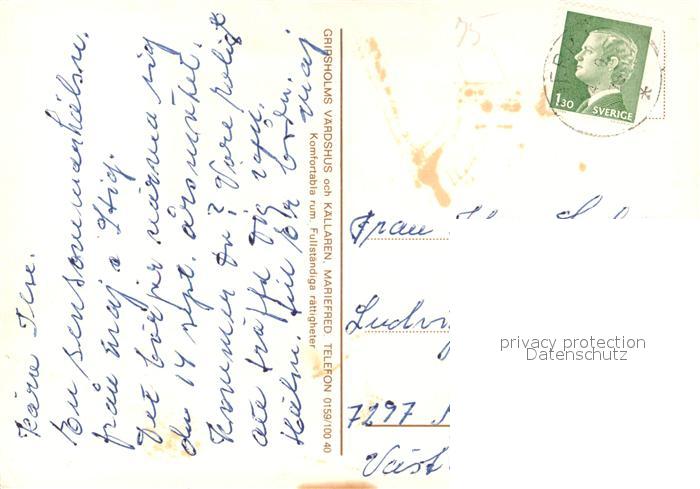 Kära Ilse.
En sensommarhälsn.
från Maj o Stig.
Det börjar närma sig
den 14 sept. årsmötet.
Kommer Du? Vore roligt
att träffa Dig igen.
Hälsn. till Er båda. Maj
GRIPSHOLMS VÄRDSHUS och KÄLLAREN, MARIEFRED TELEFON 0159/100 40
Komfortabla rum. Fullständiga rättigheter
75
1.30
SVERIGE
Frau
Ludwig
7297
Väst
privacy protection
Datenschutz